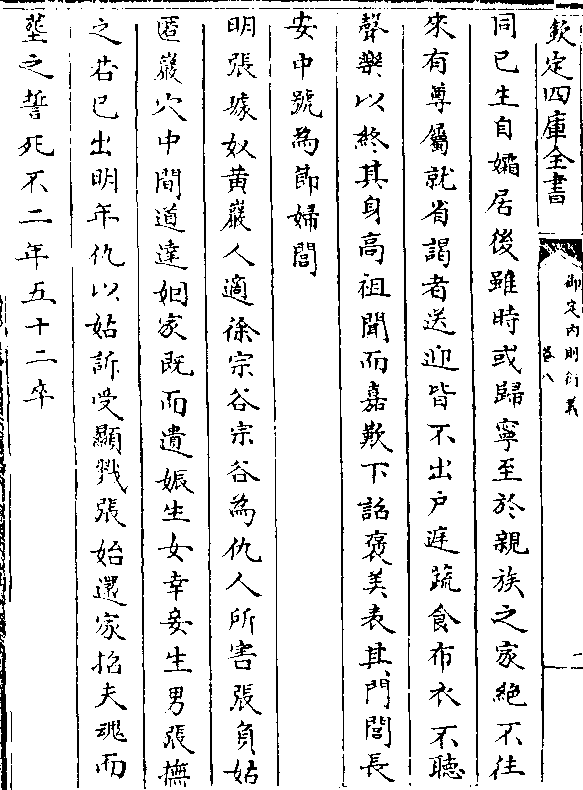 欽定四庫全書
御定內則衍義
卷八
同已生自孀居後雖時或歸寧至於親族之家絶不徃
來有尊屬就省謁者送迎皆不出户庭蔬食布衣不聽
聲樂以終其身高祖聞而嘉歎下詔褒美表其門閭長
安中號為節婦閭
明張璩奴黄巖人適徐宗谷宗谷為仇人所害張負姑
匿巖穴中間道達姻家既而遺娠生女幸妾生男張撫
之若已出明年仇以姑訴受顯戮張始還家招夫魂而
塟之誓死不二年五十二卒